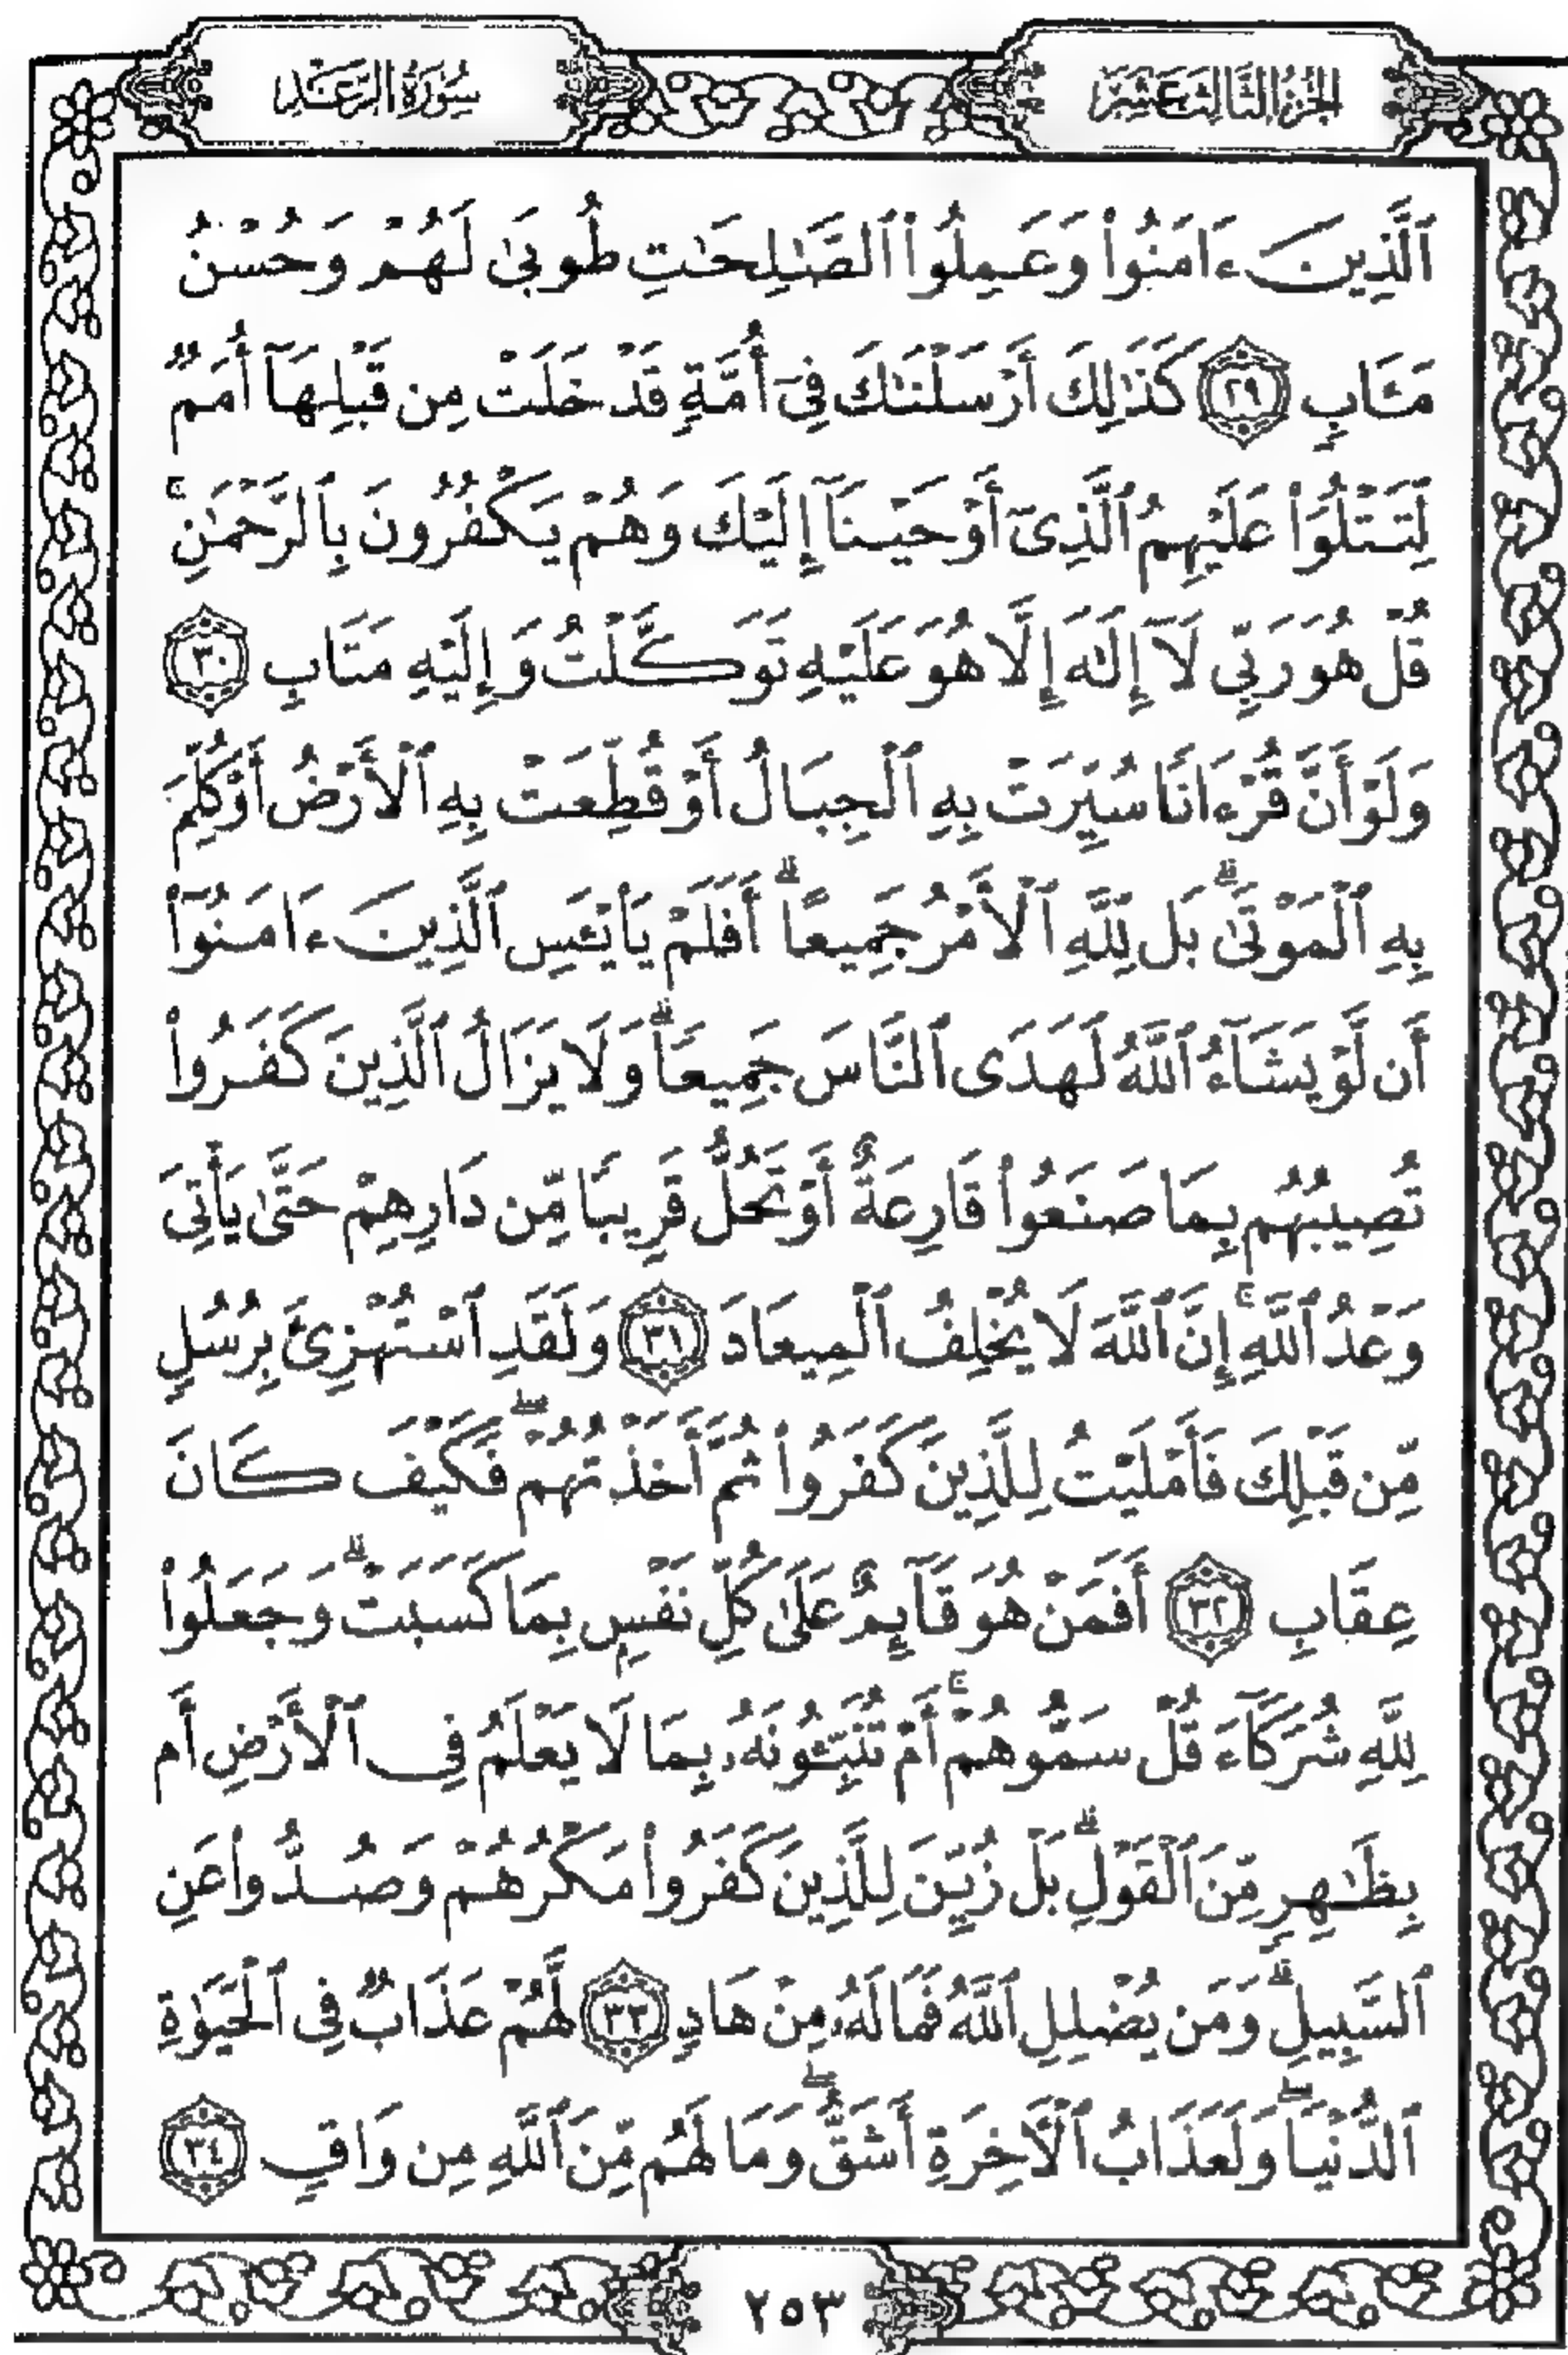 الجزء الثالث عشر
سورة الرعد
ٱلَّذِينَ ءَامَنُوا۟ وَعَمِلُوا۟ ٱلصَّٰلِحَٰتِ طُوبَىٰ لَهُمْ وَحُسْنُ
مَـَٔابٍ ٢٩ كَذَٰلِكَ أَرْسَلْنَٰكَ فِىٓ أُمَّةٍ قَدْ خَلَتْ مِن قَبْلِهَآ أُمَمٌ
لِّتَتْلُوَا۟ عَلَيْهِمُ ٱلَّذِىٓ أَوْحَيْنَآ إِلَيْكَ وَهُمْ يَكْفُرُونَ بِٱلرَّحْمَٰنِ ۚ
قُلْ هُوَ رَبِّى لَآ إِلَٰهَ إِلَّا هُوَ عَلَيْهِ تَوَكَّلْتُ وَإِلَيْهِ مَتَابِ ٣٠
وَلَوْ أَنَّ قُرْءَانًا سُيِّرَتْ بِهِ ٱلْجِبَالُ أَوْ قُطِّعَتْ بِهِ ٱلْأَرْضُ أَوْ كُلِّمَ
بِهِ ٱلْمَوْتَىٰ ۗ بَل لِّلَّهِ ٱلْأَمْرُ جَمِيعًا ۗ أَفَلَمْ يَا۟يْـَٔسِ ٱلَّذِينَ ءَامَنُوٓا۟
أَن لَّوْ يَشَآءُ ٱللَّهُ لَهَدَى ٱلنَّاسَ جَمِيعًا ۗ وَلَا يَزَالُ ٱلَّذِينَ كَفَرُوا۟
تُصِيبُهُم بِمَا صَنَعُوا۟ قَارِعَةٌ أَوْ تَحُلُّ قَرِيبًا مِّن دَارِهِمْ حَتَّىٰ يَأْتِىَ
وَعْدُ ٱللَّهِ ۚ إِنَّ ٱللَّهَ لَا يُخْلِفُ ٱلْمِيعَادَ ٣١ وَلَقَدِ ٱسْتُهْزِئَ بِرُسُلٍ
مِّن قَبْلِكَ فَأَمْلَيْتُ لِلَّذِينَ كَفَرُوا۟ ثُمَّ أَخَذْتُهُمْ ۖ فَكَيْفَ كَانَ
عِقَابِ ٣٢ أَفَمَنْ هُوَ قَآئِمٌ عَلَىٰ كُلِّ نَفْسٍۭ بِمَا كَسَبَتْ ۗ وَجَعَلُوا۟
لِلَّهِ شُرَكَآءَ قُلْ سَمُّوهُمْ ۚ أَمْ تُنَبِّـُٔونَهُۥ بِمَا لَا يَعْلَمُ فِى ٱلْأَرْضِ أَم
بِظَٰهِرٍ مِّنَ ٱلْقَوْلِ ۗ بَلْ زُيِّنَ لِلَّذِينَ كَفَرُوا۟ مَكْرُهُمْ وَصُدُّوا۟ عَنِ
ٱلسَّبِيلِ ۗ وَمَن يُضْلِلِ ٱللَّهُ فَمَا لَهُۥ مِنْ هَادٍ ٣٣ لَّهُمْ عَذَابٌ فِى ٱلْحَيَوٰةِ
ٱلدُّنْيَا ۖ وَلَعَذَابُ ٱلْءَاخِرَةِ أَشَقُّ ۖ وَمَا لَهُم مِّنَ ٱللَّهِ مِن وَاقٍ ٣٤
٢٥٣